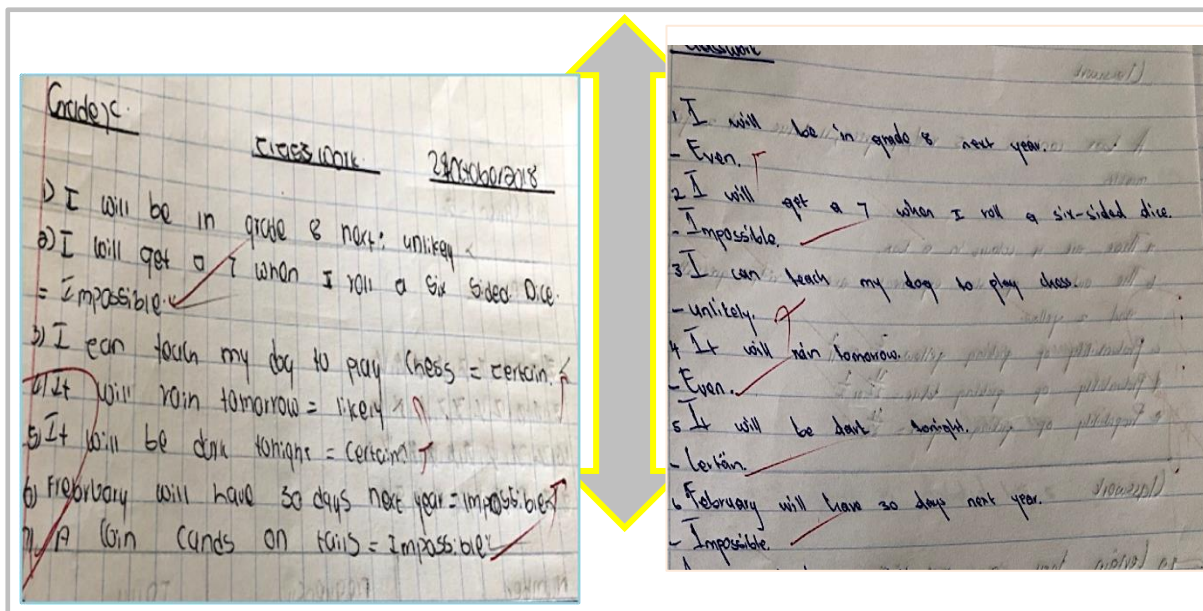 Grade 7c.
Classwork.
1) I will be in grade 8 next: unlikely
2) I will get a 7 when I roll a Six Sided Dice.
= Impossible.
3) I can teach my dog to play Chess = certain.
4) It will rain tomorrow = likely
5) It will be dark tonight = certain
6) Frebruary will have 30 days next year = impossible
7) A Coin Lands on tails = Impossible
Classwork
1. I will be in grade 8 next year.
- Even.
2 I will get a 7 when I roll a six-sided dice.
- Impossible.
3 I can teach my dog to play chess.
- unlikely.
4 It will rain tomorrow.
- Even.
5 It will be dark tonight.
- Certain.
6 February will have 30 days next year.
- Impossible.